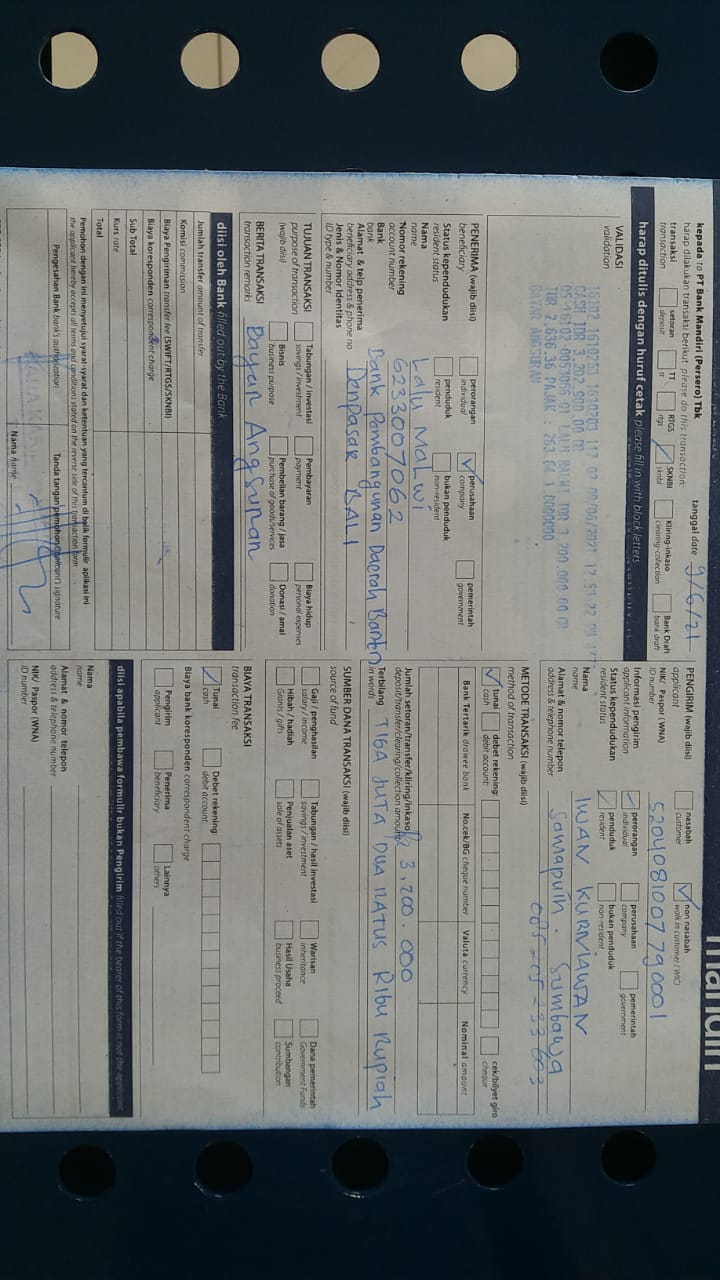 mandiri
kepada : PT Bank Mandiri (Persero) Tbk
tanggal date 9/6/21
harap dilakukan transaksi berikut please do this transaction:
transaksi setoran TT RTGS SKNBI Kliring-inkaso Bank Draft
transaction deposit tt rtgs sknbi clearing-collection bank draft
harap ditulis dengan huruf cetak please fill in with block letters
VALIDASI
validation
CASH IDR 3,202,900.00
BAYAR ANGSURAN
PENERIMA (wajib diisi) perorangan perusahaan pemerintah
beneficiary individual company government
Status kependudukan penduduk bukan penduduk
resident status resident non-resident
Nama Lalu Malwi
name
Nomor rekening 6233007062
account number
Bank Bank Pembangunan Daerah Banten
bank
Alamat & telp penerima Denpasar BALI
beneficiary address & phone no
Jenis & Nomor Identitas
ID type & number
TUJUAN TRANSAKSI Tabungan / investasi Pembayaran Biaya hidup
purpose of transaction savings / investment payment personal expenses
(wajib diisi) Bisnis Pembelian barang / jasa Donasi / amal
business purpose purchase of goods/services donation
BERITA TRANSAKSI Bayar Angsuran
transaction remarks
diisi oleh Bank filled out by the Bank
Jumlah transfer amount of transfer
Komisi commission
Biaya Pengiriman transfer fee (SWIFT/RTGS/SKNBI)
Biaya koresponden correspondent charge
Sub Total
Kurs rate
Total
Pemohon dengan ini menyetujui syarat-syarat dan ketentuan yang tercantum di balik formulir aplikasi ini
the applicant hereby accepts all terms and conditions stated on the reverse side of this transaction form
Pengesahan Bank bank's authorization Tanda tangan pemohon applicant's signature
Nama name
PENGIRIM (wajib diisi) nasabah non nasabah
applicant customer walk in customer (WIC)
NIK/ Paspor (WNA) 5204081007790001
ID number
Informasi pengirim perorangan perusahaan pemerintah
applicant information individual company government
Status kependudukan penduduk bukan penduduk
resident status resident non-resident
Nama IWAN KURNIAWAN
name
Alamat & nomor telepon Samapuin - Sumbawa
address & telephone number
METODE TRANSAKSI (wajib diisi)
method of transaction
tunai debet rekening: cek/bilyet giro
cash debit account: cheque
Bank Tertarik drawee bank No.cek/BG cheque number Valuta currency Nominal amount
Jumlah setoran/transfer/kliring/inkaso Rp 3.200.000
deposit/transfer/clearing/collection amount
Terbilang TIGA JUTA DUA RATUS RIBU RUPIAH
in words
SUMBER DANA TRANSAKSI (wajib diisi)
source of fund
Gaji / penghasilan Tabungan / hasil investasi Warisan Dana pemerintah
salary / income savings / investment inheritance Government Funds
Hibah / hadiah Penjualan aset Hasil Usaha Sumbangan
Grants / gifts sale of assets business proceed contribution
BIAYA TRANSAKSI
transaction fee
Tunai Debet rekening:
cash debit account:
Biaya bank koresponden correspondent charge
Pengirim Penerima Lainnya
applicant beneficiary others
diisi apabila pembawa formulir bukan Pengirim filled out if the bearer of this form is not the applicant
Nama
name
Alamat & nomor telepon
address & telephone number
NIK/ Paspor (WNA)
ID number